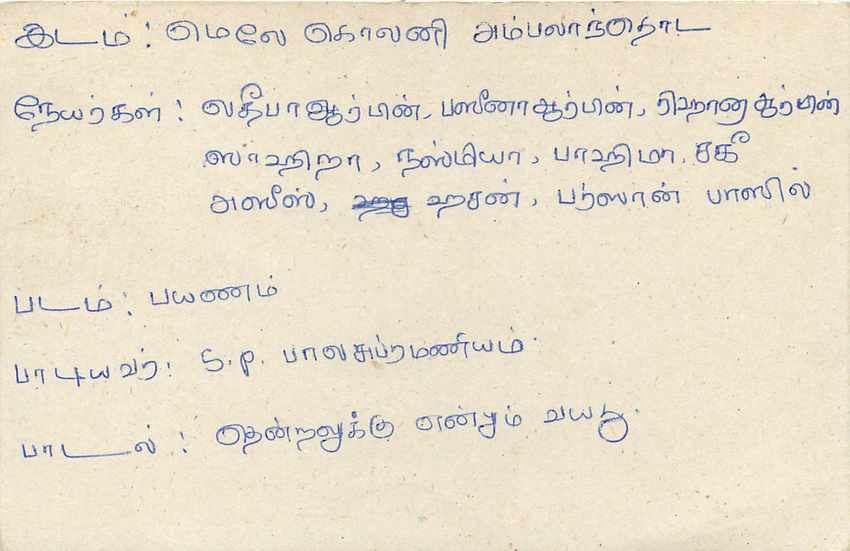 இடம் : மெலே கொலனி அம்பலாந்தொட
நேயர்கள் : லதீபாஆர்பின், பஸீனாஆர்பின், ரிஹானாஆர்பின்
ஸாஹிறா, நஸ்மியா, பாஹிமா, சகீ
அஸீஸ், ஹசன், பர்ஸான் பாஸில்
படம் : பயணம்
பாடியவர் : S.P. பாலசுப்ரமணியம்
பாடல் : தென்றலுக்கு என்றும் வயது.